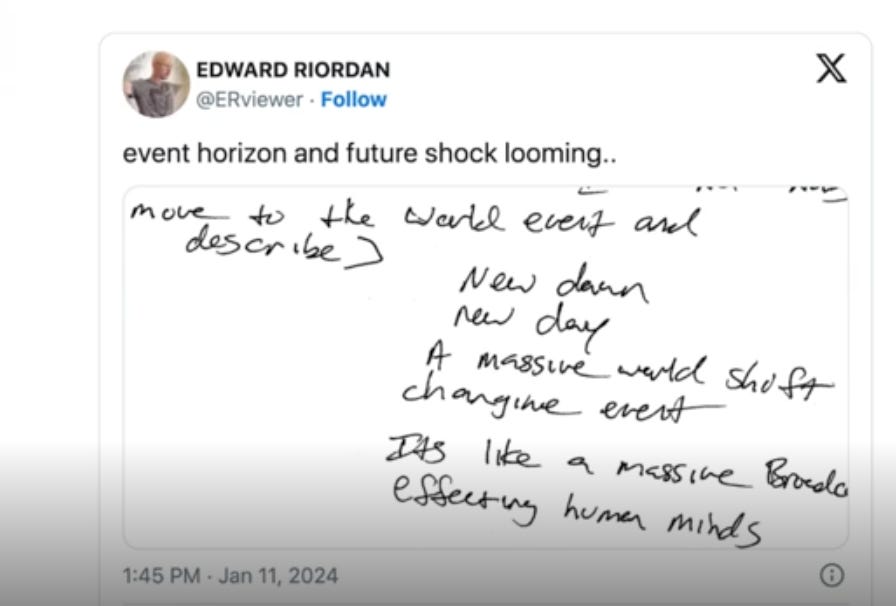 EDWARD RIORDAN
@ERviewer · Follow
event horizon and future shock looming..
move to the world event and
describe]
New dawn
new day
A massive world shift
changing event
Its like a massive
effecting human minds
1:45 PM · Jan 11, 2024